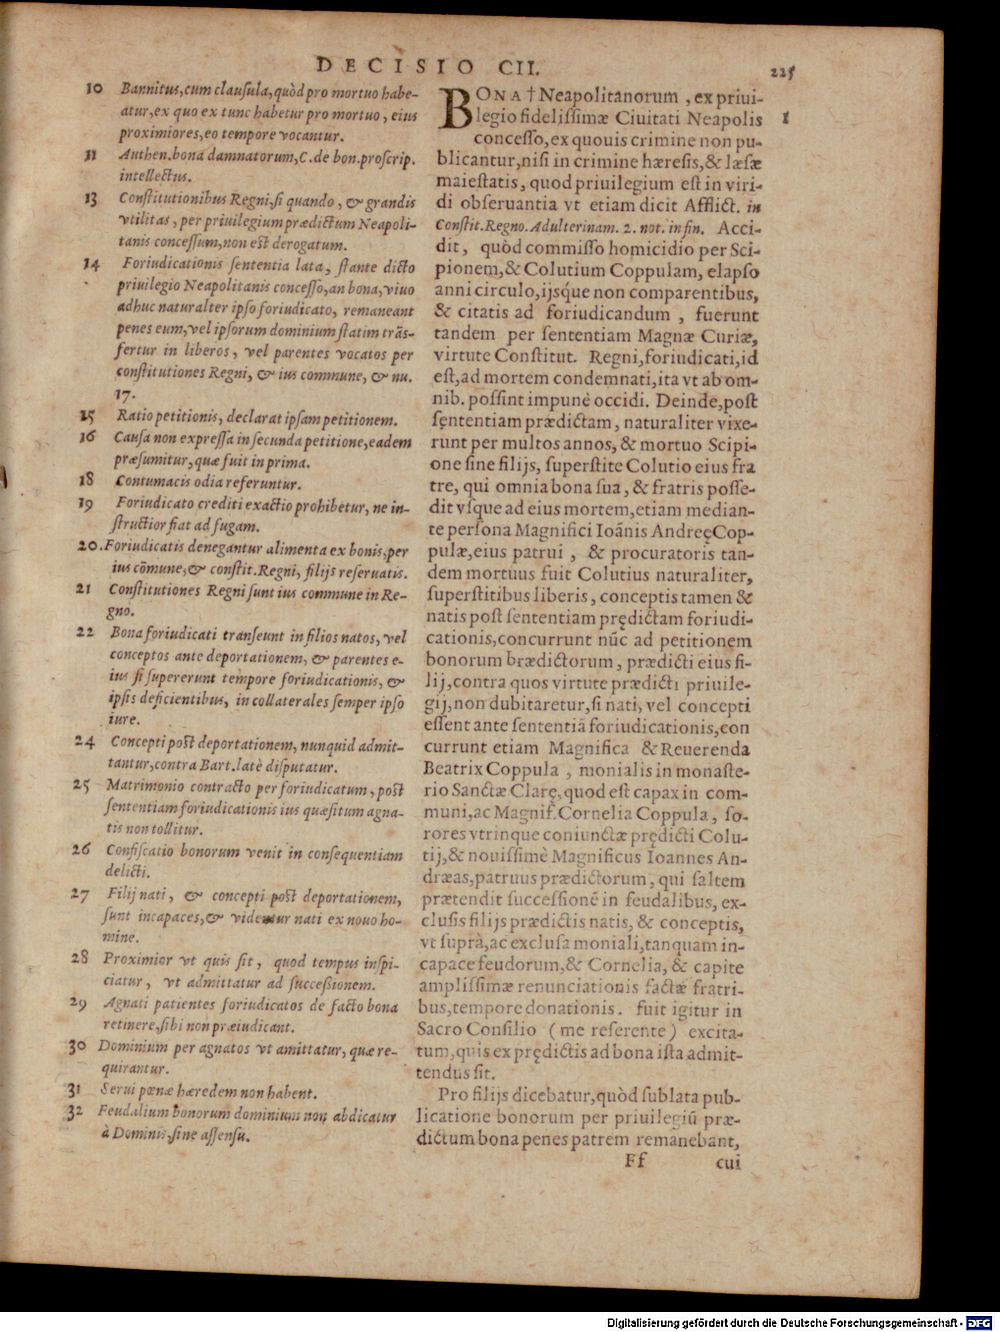 DECISIO CII.
225
10 Bannitus, cum clausula, quòd pro mortuo habe-
atur, ex quo ex tunc habetur pro mortuo, eius
proximiores, eo tempore vocantur.
11 Authen. bona damnatorum, C. de bon. proscrip.
intellectus.
13 Constitutionibus Regni, si quando, & grandis
vtilitas, per priuilegium prædictum Neapoli-
tanis concessum, non est derogatum.
14 Foriudicationis sententia lata, stante dicto
priuilegio Neapolitanis concesso, an bona, viuo
adhuc naturalter ipso foriudicato, remaneant
penes eum, vel ipsorum dominium statim trãs-
fertur in liberos, vel parentes vocatos per
constitutiones Regni, & ius commune, & nu.
17.
15 Ratio petitionis, declarat ipsam petitionem.
16 Causa non expressa in secunda petitione, eadem
præsumitur, quæ fuit in prima.
18 Contumacis odia referuntur.
19 Foriudicato crediti exactio prohibetur, ne in-
structior fiat ad fugam.
20. Foriudicatis denegantur alimenta ex bonis, per
ius cõmune, & constit. Regni, filijs reseruatis.
21 Constitutiones Regni sunt ius commune in Re-
gno.
22 Bona foriudicati transeunt in filios natos, vel
conceptos ante deportationem, & parentes e-
ius si supererunt tempore foriudicationis, &
ipsis deficientibus, in collaterales semper ipso
iure.
24 Concepti post deportationem, nunquid admit-
tantur, contra Bart. latè disputatur.
25 Matrimonio contracto per foriudicatum, post
sententiam foriudicationis ius quæsitum agna-
tis non tollitur.
26 Confiscatio bonorum venit in consequentiam
delicti.
27 Filij nati, & concepti post deportationem,
sunt incapaces, & videntur nati ex nouo ho-
mine.
28 Proximior vt quis sit, quod tempus inspi-
ciatur, vt admittatur ad successionem.
29 Agnati patientes foriudicatos de facto bona
retinere, sibi non præiudicant.
30 Dominium per agnatos vt amittatur, quæ re-
quirantur.
31 Serui pœnæ hæredem non habent.
32 Feudalium bonorum dominium non abdicatur
à Dominis, sine assensu.
BONA † Neapolitanorum, ex priui-
legio fidelissimæ Ciuitati Neapolis 1
concesso, ex quouis crimine non pu-
blicantur, nisi in crimine hæresis, & læsæ
maiestatis, quod priuilegium est in viri-
di obseruantia vt etiam dicit Afflict. in
Constit. Regno. Adulterinam. 2. not. in fin. Acci-
dit, quòd commisso homicidio per Sci-
pionem, & Colutium Coppulam, elapso
anni circulo, ijsq́ue non comparentibus,
& citatis ad foriudicandum, fuerunt
tandem per sententiam Magnæ Curiæ,
virtute Constitut. Regni, foriudicati, id
est, ad mortem condemnati, ita vt ab om-
nib. possint impunè occidi. Deinde, post
sententiam prædictam, naturaliter vixe-
runt per multos annos, & mortuo Scipi-
one sine filijs, superstite Colutio eius fra
tre, qui omnia bona sua, & fratris posse-
dit vsque ad eius mortem, etiam median-
te persona Magnifici Ioãnis Andreę Cop-
pulæ, eius patrui, & procuratoris tan-
dem mortuus fuit Colutius naturaliter,
superstitibus liberis, conceptis tamen &
natis post sententiam prędictam foriudi-
cationis, concurrunt nũc ad petitionem
bonorum brædictorum, prædicti eius fi-
lij, contra quos virtute prædicti priuile-
gij, non dubitaretur, si nati, vel concepti
essent ante sententiã foriudicationis, con
currunt etiam Magnifica & Reuerenda
Beatrix Coppula, monialis in monaste-
rio Sanctæ Clarę, quod est capax in com-
muni, ac Magnif. Cornelia Coppula, so-
rores vtrinque coniunctæ prędicti Colu-
tij, & nouissimè Magnificus Ioannes An-
dræas, patruus prædictorum, qui saltem
prætendit successionẽ in feudalibus, ex-
clusis filijs prædictis natis, & conceptis,
vt suprà, ac exclusa moniali, tanquam in-
capace feudorum, & Cornelia, & capite
amplissimæ renunciationis factæ fratri-
bus, tempore donationis. fuit igitur in
Sacro Consilio (me referente) excita-
tum, quis ex prędictis ad bona ista admit-
tendus sit.
Pro filijs dicebatur, quòd sublata pub-
licatione bonorum per priuilegiũ præ-
dictum bona penes patrem remanebant,
Ff cui
Digitalisierung gefördert durch die Deutsche Forschungsgemeinschaft - DFG